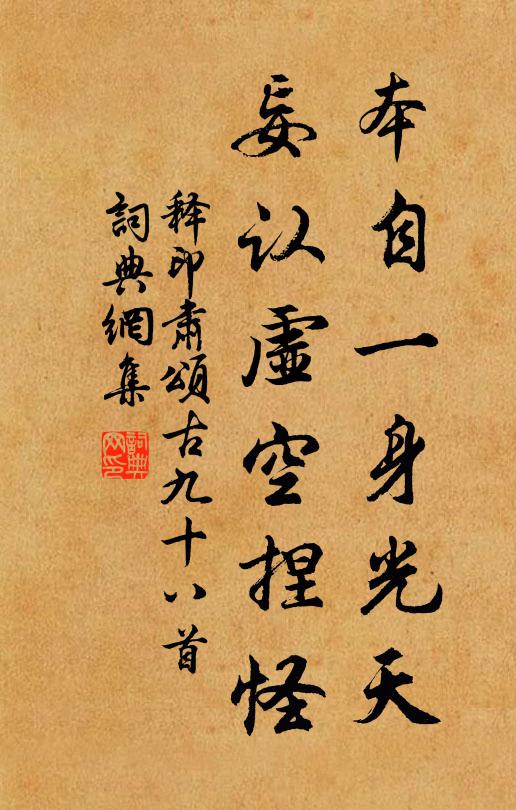 本自一身光天
妄认虚空捏怪
释印肃颂古九十八首
詞典網集
詞典網印